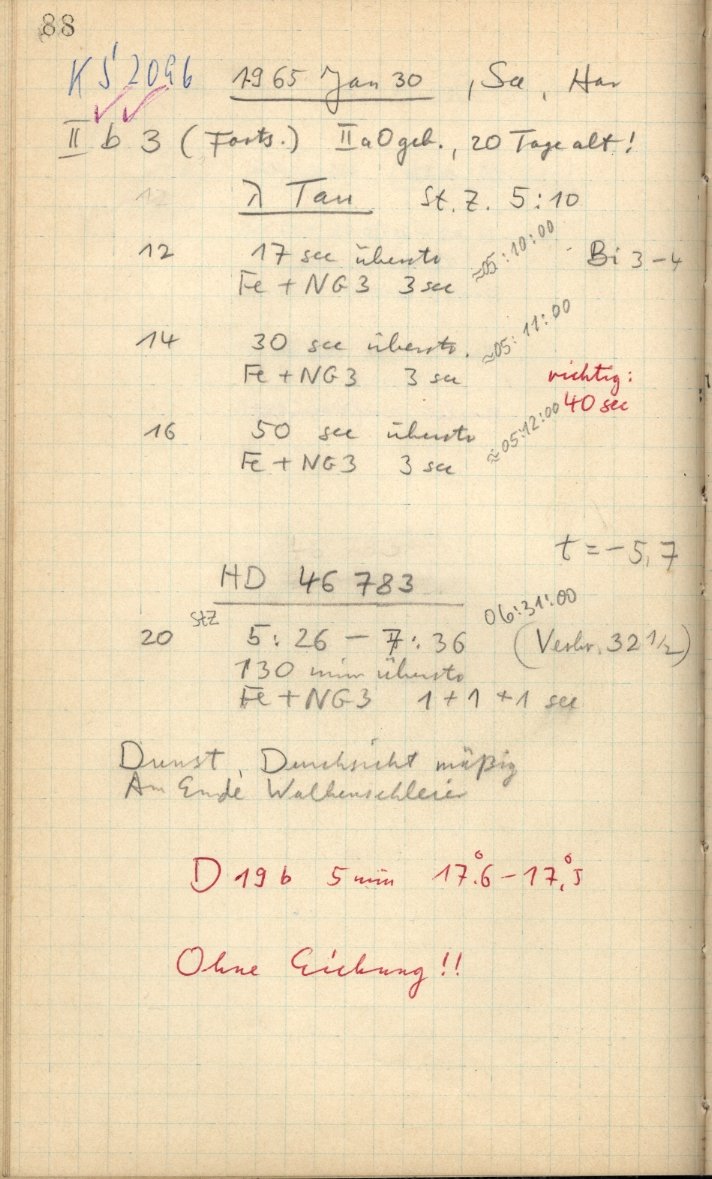 88
KS 2096 1965 Jan 30, See, Har
II b 3 (Forts.) II a O geb., 20 Tage alt!
12 λ Tau St. Z. 5:10
12 17 sec überstr ≈05:10:00 Bi 3-4
Fe + NG3 3 sec
14 30 sec überstr. ≈05:11:00
Fe + NG3 3 sec richtig:
40 sec
16 50 sec überstr ≈05:12:00
Fe + NG3 3 sec
t = -5,7
HD 46 783
20 StZ 5:26 - 7:36 06:31:00 (Verbr. 32 1/2)
130 min überstr
Fe + NG3 1 + 1 + 1 sec
Dunst, Durchsicht mäßig
Am Ende Wolkenschleier
D 19 b 5 min 17°.6 - 17°.5
Ohne Eichung!!